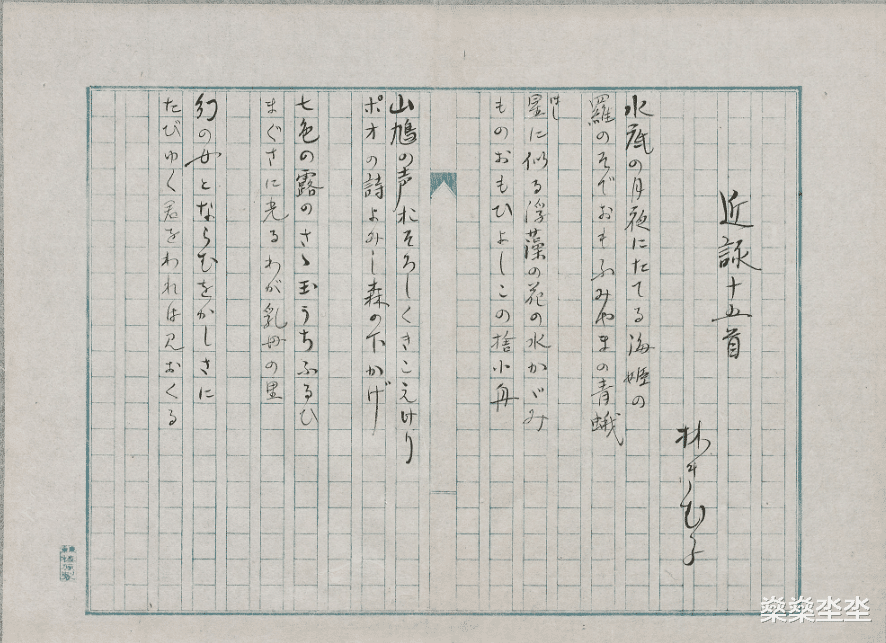 近詠十五首
林きむ子
水底の月夜にたてる海姫の
羅のそでおもふみやまの青蛾
星に似る浮藻の花の水かゞみ
ほし
ものおもひよしこの捨小舟
山鳩の声おそろしくきこえけり
ポオの詩よみし森の下かげ
七色の露のさゝ玉うちふるひ
まぐさに光るわが乳母の星
幻の女とならむをかしさに
たびゆく君をわれは見おくる
燊燊坔坔